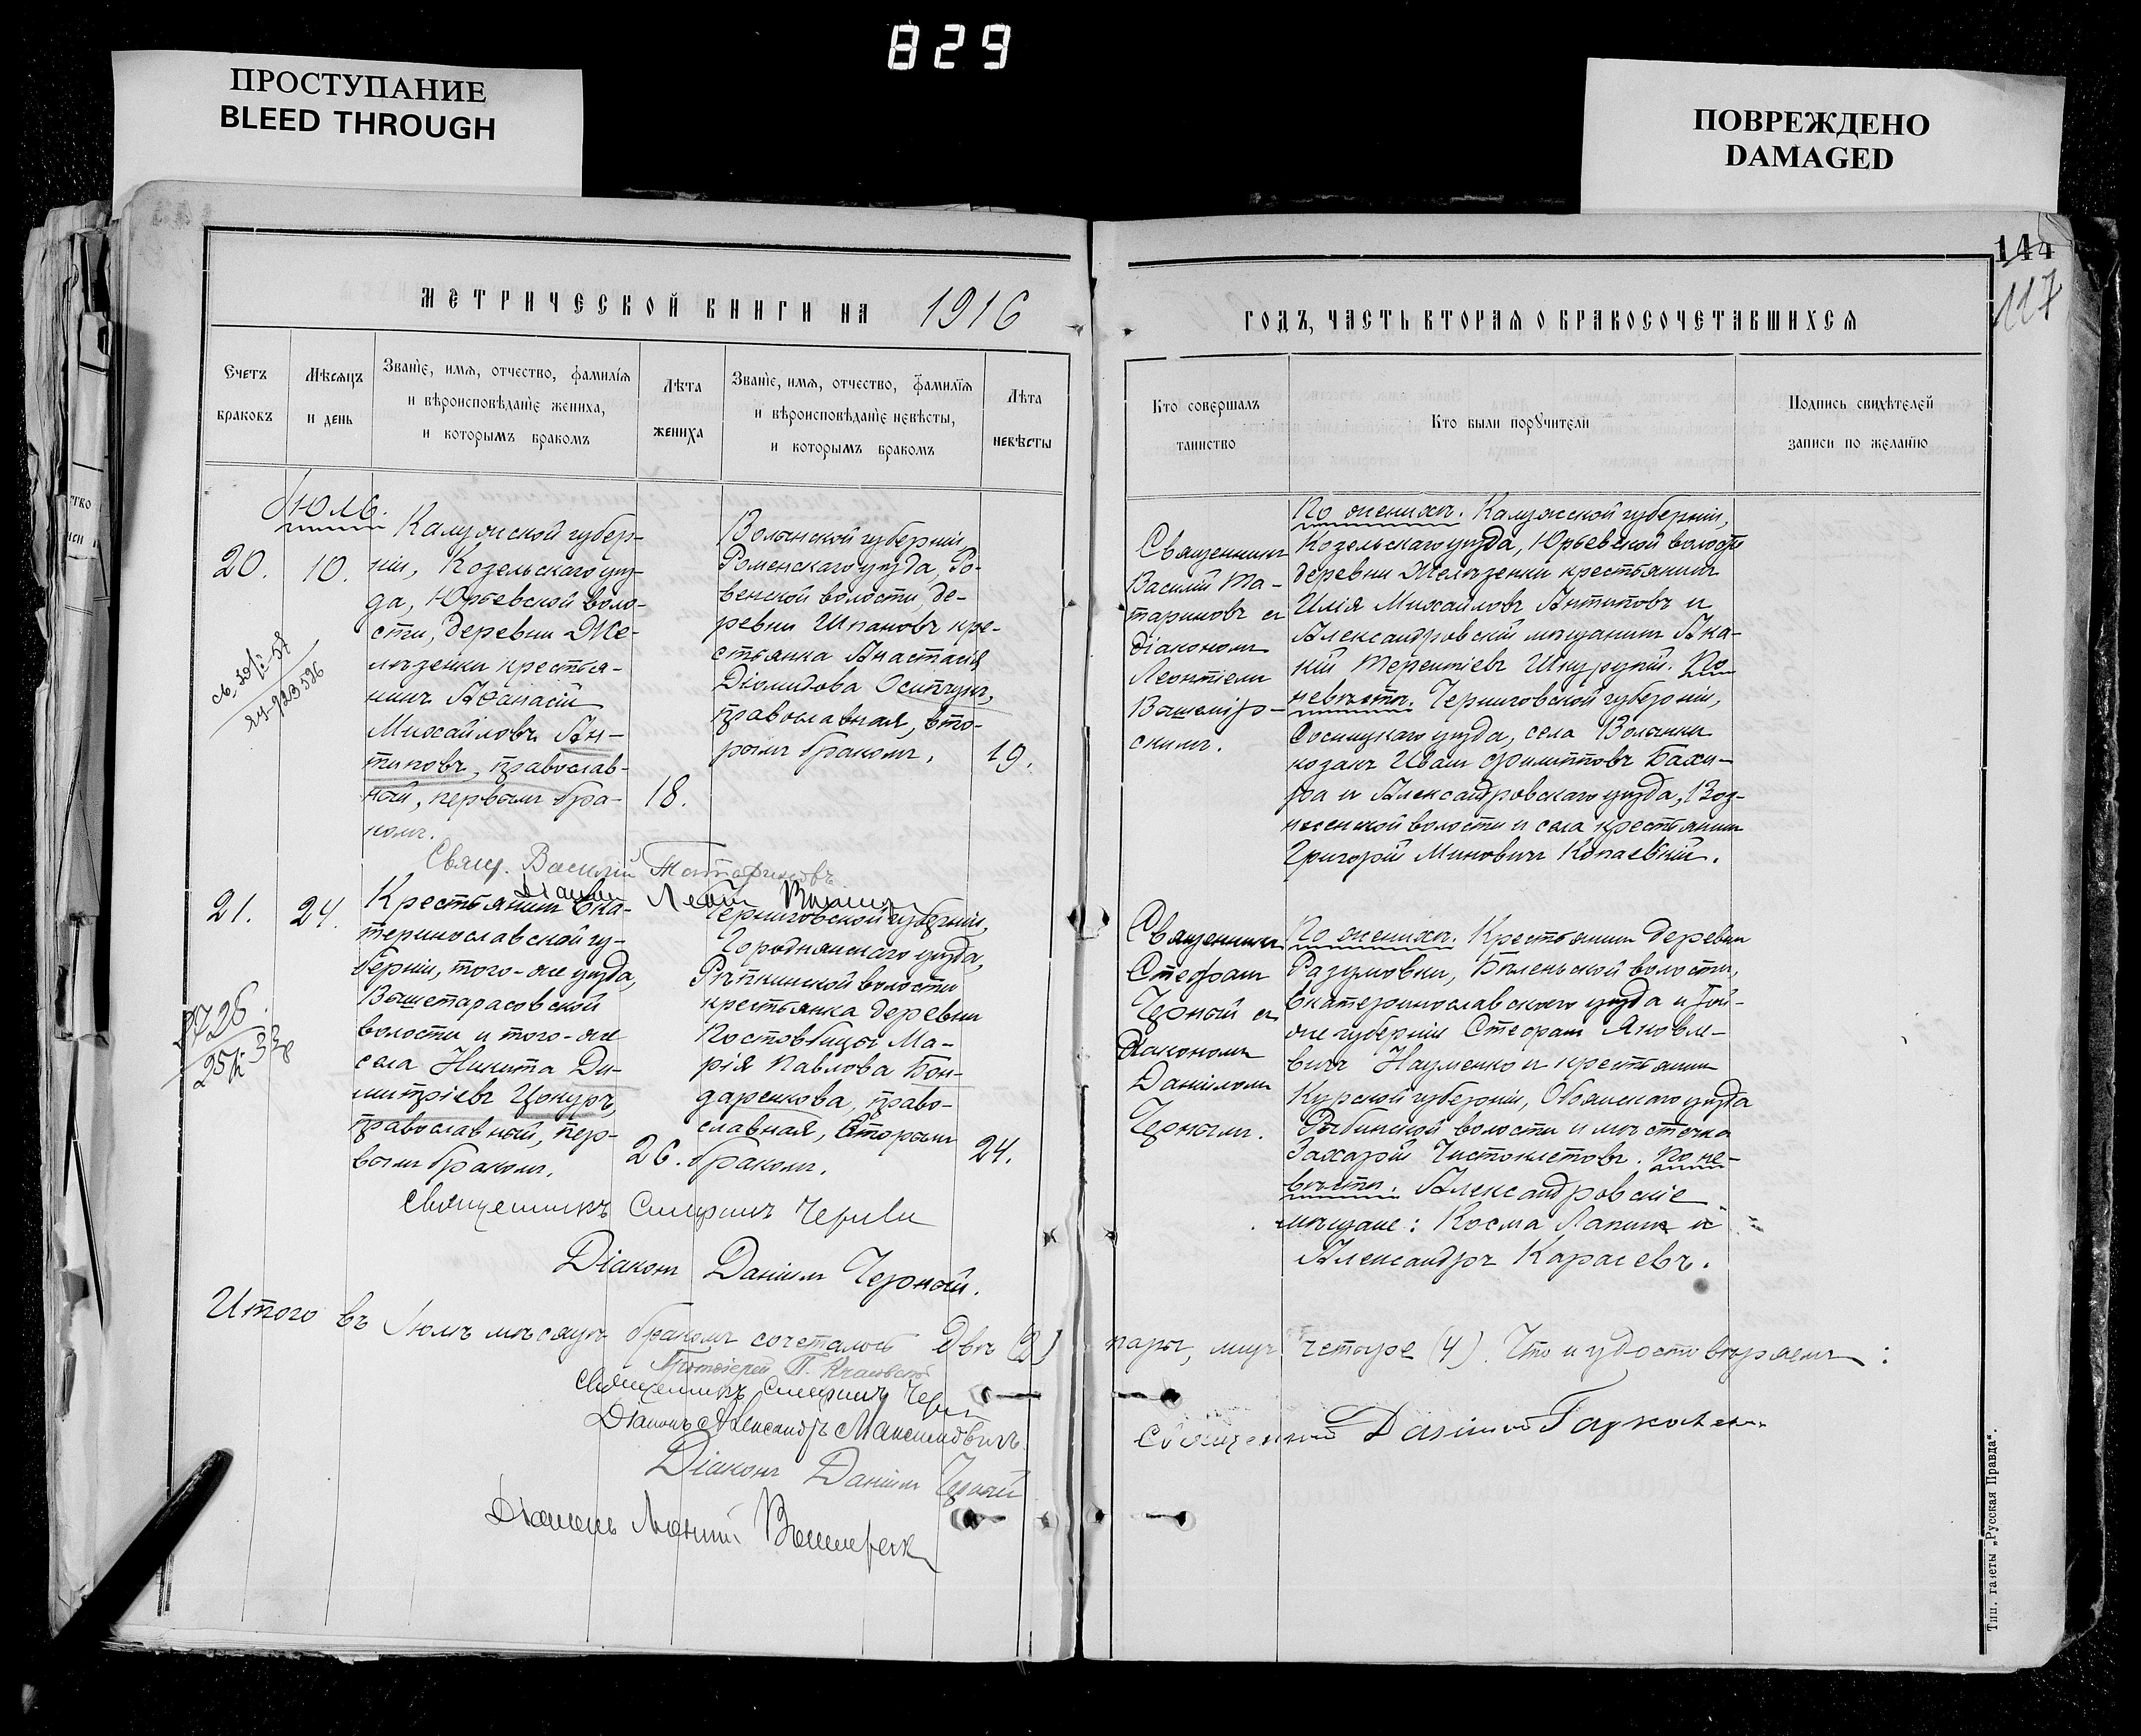 829
ПРОСТУПАНИЕ
BLEED THROUGH
ПОВРЕЖДЕНО
DAMAGED
144
117
МЕТРИЧЕСКОЙ КНИГИ НА 1916
ГОДЪ, ЧАСТЬ ВТОРАЯ О БРАКОСОЧЕТАВШИХСЯ
Счетъ браковъ
Мѣсяцъ и день
Званіе, имя, отчество, фамилія и вѣроисповѣданіе жениха, и которымъ бракомъ
Лѣта жениха
Званіе, имя, отчество, фамилія и вѣроисповѣданіе невѣсты, и которымъ бракомъ
Лѣта невѣсты
Кто совершалъ таинство
Кто были поручители
Подпись свидѣтелей записи по желанію
Іюль.
20.
10.
Калужской губер-
ніи, Козельскаго уѣз-
да, Юрьевской воло-
сти, деревни Же-
лѣзенки крестья-
нинъ Аѳанасій
Михайловъ Ан-
типовъ, православ-
ный, первымъ бра-
комъ.
18.
Волынской губерніи,
Роменскаго уѣзда, Ро-
венской волости, де-
ревни Шпановъ кре-
стьянка Анастасія
Діомидова Осипчукъ,
православная, вто-
рымъ бракомъ.
19.
Священникъ
Василій Та-
тариновъ съ
діакономъ
Леонтіемъ
Вышемір-
скимъ.
По женихѣ. Калужской губерніи,
Козельскаго уѣзда, Юрьевской волости
деревни Желѣзенки крестьянинъ
Илія Михайловъ Антиповъ и
Александровскій мѣщанинъ Ака-
кій Терентіевъ Шкурупій. По
невѣстѣ. Черниговской губерніи,
Сосницкаго уѣзда, села Волынки
козакъ Иванъ Филипповъ Бахи-
ра и Александровскаго уѣзда, Воз-
несенской волости и села крестьянинъ
Григорій Миновичъ Копаевъ.
Свящ. Василій Татариновъ
21.
24.
Крестьянинъ Ека-
теринославской гу-
берніи, того-же уѣзда,
Вышетарасовской
волости и того-же
села Никита Ди-
митріевъ Цокуръ,
православный, пер-
вымъ бракомъ.
26.
Черниговской губерніи,
Городнянскаго уѣзда,
Рѣпкинской волости
крестьянка деревни
Костовбицы Ма-
рія Павлова Бон-
даренкова, право-
славная, вторымъ
бракомъ.
24.
Священникъ
Стефанъ
Черный съ
діакономъ
Даніиломъ
Чернымъ.
По женихѣ. Крестьянинъ деревни
Разумовки, Бѣленьской волости,
Екатеринославскаго уѣзда и той-
же губерніи Стефанъ Яковле-
вичъ Науменко и крестьянинъ
Курской губерніи, Обоянскаго уѣзда
Рыбинской волости и мѣстечка
Захарій Чистоклетовъ. По не-
вѣстѣ. Александровскіе
мѣщане: Косма Лапинъ и
Александръ Карасевъ.
Священникъ Стефанъ Черный
Діаконъ Даніилъ Черный.
Итого въ Іюлѣ мѣсяцѣ бракомъ сочеталось двѣ (2) пары, лицъ четыре (4). Что и удостовѣряемъ:
Священникъ Стефанъ Черный
Діаконъ Александръ Максимовичъ
Діаконъ Даніилъ Черный
Тип. газеты „Русская Правда“.